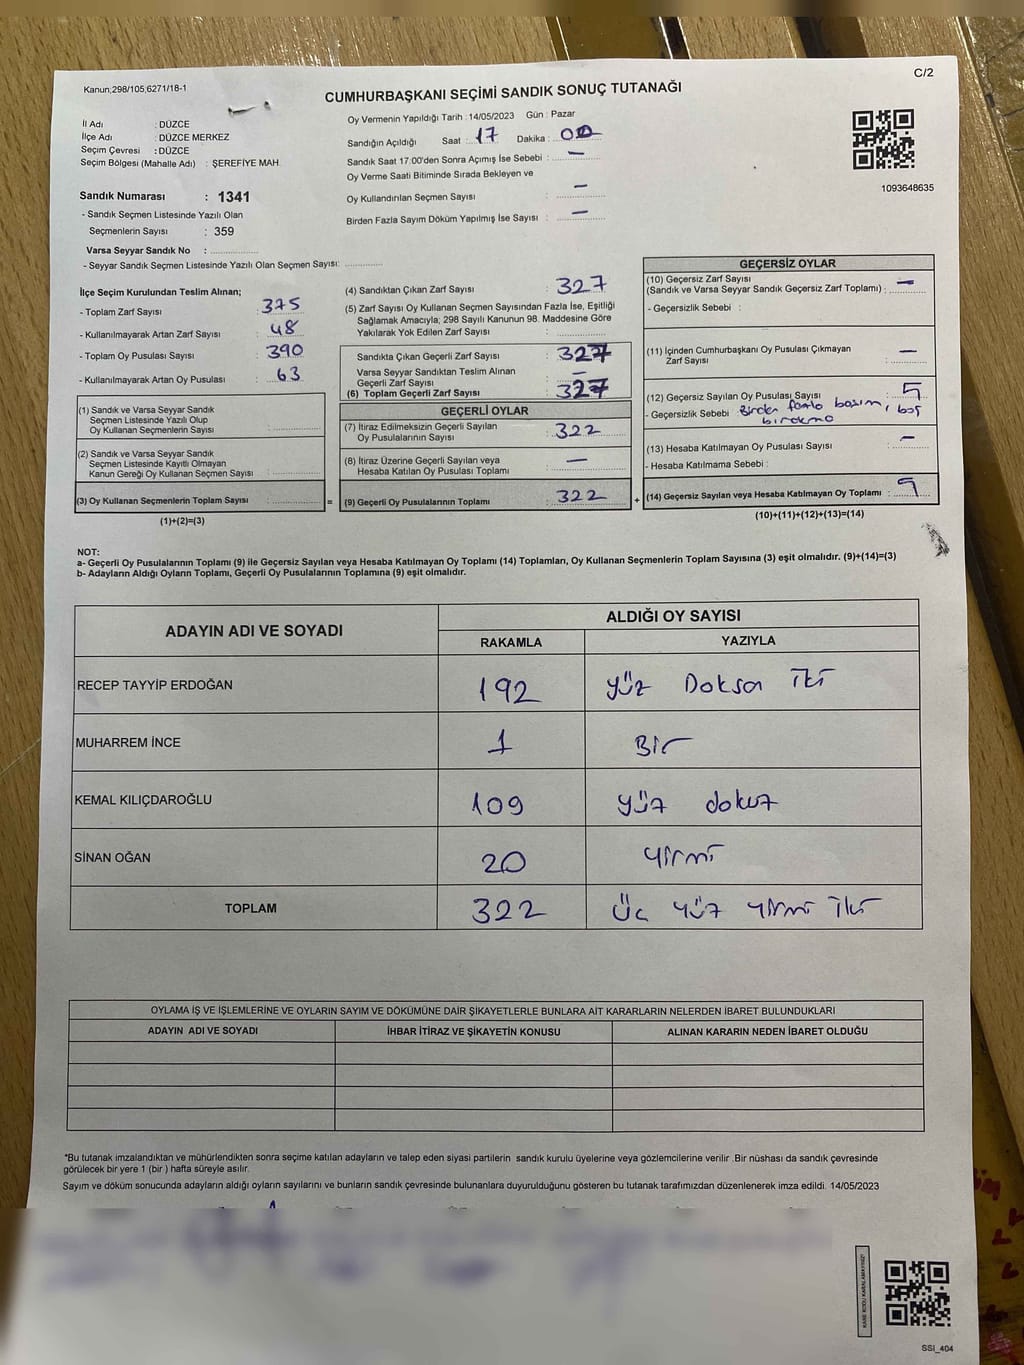 Kanun;298/105;6271/18-1
C/2
CUMHURBAŞKANI SEÇİMİ SANDIK SONUÇ TUTANAĞI
İl Adı : DÜZCE
İlçe Adı : DÜZCE MERKEZ
Seçim Çevresi : DÜZCE
Seçim Bölgesi (Mahalle Adı) : ŞEREFİYE MAH.
Sandık Numarası : 1341
- Sandık Seçmen Listesinde Yazılı Olan
Seçmenlerin Sayısı : 359
Varsa Seyyar Sandık No :
- Seyyar Sandık Seçmen Listesinde Yazılı Olan Seçmen Sayısı:
Oy Vermenin Yapıldığı Tarih : 14/05/2023 Gün : Pazar
Sandığın Açıldığı Saat : 17 Dakika : 00
Sandık Saat 17.00'den Sonra Açımış İse Sebebi : —
Oy Verme Saati Bitiminde Sırada Bekleyen ve
Oy Kullandırılan Seçmen Sayısı : —
Birden Fazla Sayım Döküm Yapılmış İse Sayısı : —
1093648635
İlçe Seçim Kurulundan Teslim Alınan;
- Toplam Zarf Sayısı : 375
- Kullanılmayarak Artan Zarf Sayısı : 48
- Toplam Oy Pusulası Sayısı : 390
- Kullanılmayarak Artan Oy Pusulası : 63
(1) Sandık ve Varsa Seyyar Sandık
Seçmen Listesinde Yazılı Olup
Oy Kullanan Seçmenlerin Sayısı :
(2) Sandık ve Varsa Seyyar Sandık
Seçmen Listesinde Kayıtlı Olmayan
Kanun Gereği Oy Kullanan Seçmen Sayısı :
(3) Oy Kullanan Seçmenlerin Toplam Sayısı : =
(1)+(2)=(3)
(4) Sandıktan Çıkan Zarf Sayısı : 327
(5) Zarf Sayısı Oy Kullanan Seçmen Sayısından Fazla İse, Eşitliği
Sağlamak Amacıyla; 298 Sayılı Kanunun 98. Maddesine Göre
Yakılarak Yok Edilen Zarf Sayısı :
Sandıkta Çıkan Geçerli Zarf Sayısı : 327
Varsa Seyyar Sandıktan Teslim Alınan
Geçerli Zarf Sayısı : —
(6) Toplam Geçerli Zarf Sayısı : 327
GEÇERLİ OYLAR
(7) İtiraz Edilmeksizin Geçerli Sayılan
Oy Pusulalarının Sayısı : 322
(8) İtiraz Üzerine Geçerli Sayılan veya
Hesaba Katılan Oy Pusulası Toplamı : —
(9) Geçerli Oy Pusulalarının Toplamı : 322 +
GEÇERSİZ OYLAR
(10) Geçersiz Zarf Sayısı
(Sandık ve Varsa Seyyar Sandık Geçersiz Zarf Toplamı) : —
- Geçersizlik Sebebi :
(11) İçinden Cumhurbaşkanı Oy Pusulası Çıkmayan
Zarf Sayısı : —
(12) Geçersiz Sayılan Oy Pusulası Sayısı : 5
- Geçersizlik Sebebi : Birden fazla basım, boş
(13) Hesaba Katılmayan Oy Pusulası Sayısı : —
- Hesaba Katılmama Sebebi :
(14) Geçersiz Sayılan veya Hesaba Katılmayan Oy Toplamı : 5
(10)+(11)+(12)+(13)=(14)
NOT:
a- Geçerli Oy Pusulalarının Toplamı (9) ile Geçersiz Sayılan veya Hesaba Katılmayan Oy Toplamı (14) Toplamları, Oy Kullanan Seçmenlerin Toplam Sayısına (3) eşit olmalıdır. (9)+(14)=(3)
b- Adayların Aldığı Oyların Toplamı, Geçerli Oy Pusulalarının Toplamına (9) eşit olmalıdır.
ADAYIN ADI VE SOYADI
ALDIĞI OY SAYISI
RAKAMLA YAZIYLA
RECEP TAYYİP ERDOĞAN 192 Yüz Doksan İki
MUHARREM İNCE 1 Bir
KEMAL KILIÇDAROĞLU 109 yüz dokuz
SİNAN OĞAN 20 yirmi
TOPLAM 322 Üç yüz yirmi iki
OYLAMA İŞ VE İŞLEMLERİNE VE OYLARIN SAYIM VE DÖKÜMÜNE DAİR ŞİKAYETLERLE BUNLARA AİT KARARLARIN NELERDEN İBARET BULUNDUKLARI
ADAYIN ADI VE SOYADI İHBAR İTİRAZ VE ŞİKAYETİN KONUSU ALINAN KARARIN NEDEN İBARET OLDUĞU
*Bu tutanak imzalandıktan ve mühürlendikten sonra seçime katılan adayların ve talep eden siyasi partilerin sandık kurulu üyelerine veya gözlemcilerine verilir .Bir nüshası da sandık çevresinde
görülecek bir yere 1 (bir ) hafta süreyle asılır.
Sayım ve döküm sonucunda adayların aldığı oyların sayılarını ve bunların sandık çevresinde bulunanlara duyurulduğunu gösteren bu tutanak tarafımızdan düzenlenerek imza edildi. 14/05/2023
SSİ_404